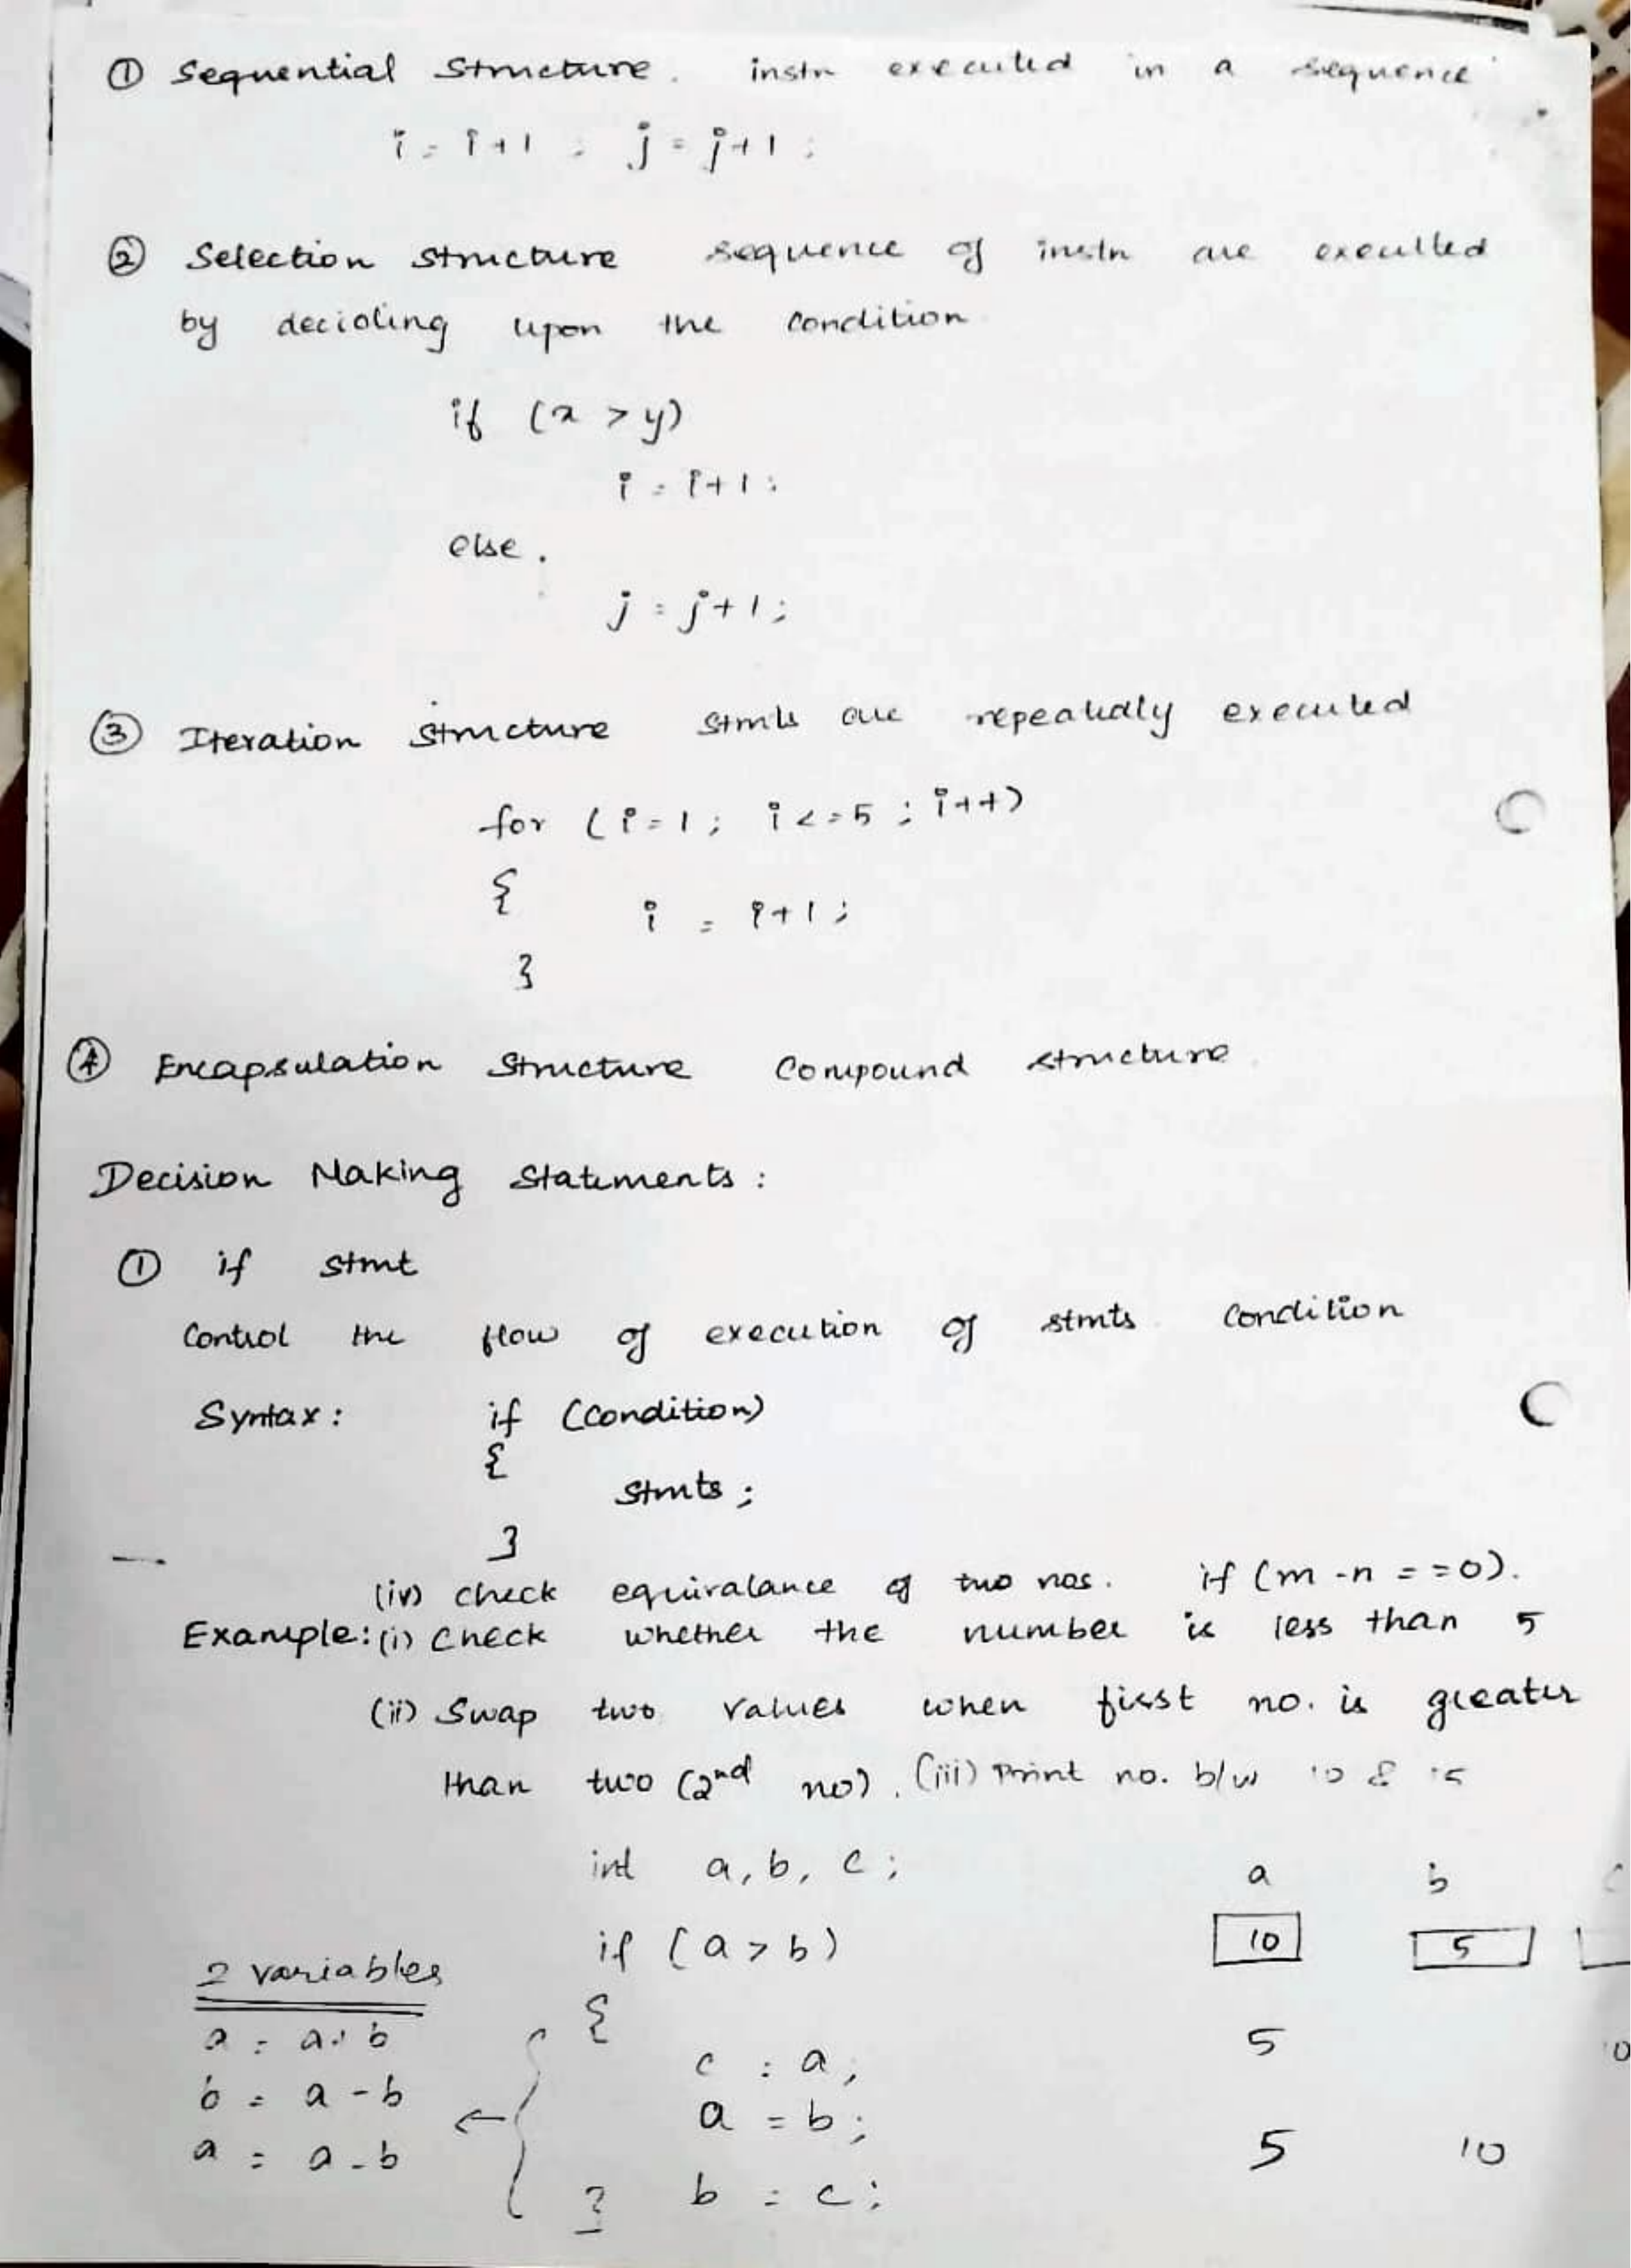 ① Sequential structure. instn executed in a sequence
i = i+1 ; j = j+1 ;
② Selection structure sequence of instn are executed
by deciding upon the condition
if (x > y)
i = i+1 ;
else.
j = j+1 ;
③ Iteration structure stmts are repeatedly executed
for (i=1 ; i<=5 ; i++)
{
i = i+1 ;
}
④ Encapsulation structure compound structure
Decision Making Statements :
① if stmt
Control the flow of execution of stmts condition
Syntax : if (condition)
{
stmts ;
}
(iv) check equivalance of two nos. if (m -n = =0).
Example: (i) check whether the number is less than 5
(ii) Swap two values when first no. is greater
than two (2nd no). (iii) Print no. b/w 10 & 15
int a, b, c ; a b c
if (a > b) 10 5
2 variables
{
a = a+b 5 10
c = a ;
b = a - b
a = b ;
a = a - b 5 10
} b = c ;